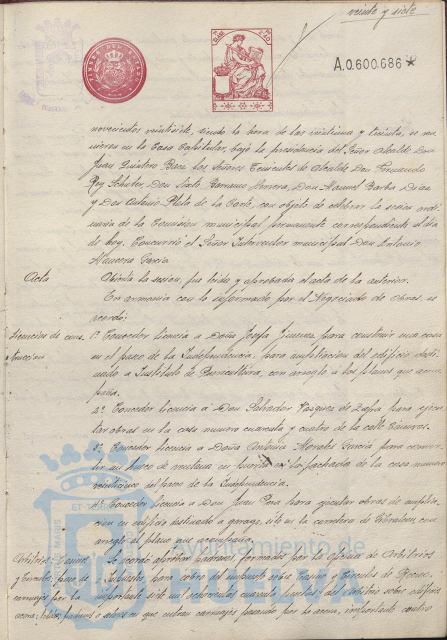 veinte y siete
A.0.600.686 *
novecientos veintisiete, siendo la hora de las veintiuna y treinta, se reu-
nieron en la Casa Capitular bajo la presidencia del Señor Alcalde Don
Juan Quintero Baez los señores Tenientes de Alcalde Don Fernando
Rey Don Sixto Barranco Don Manuel Barba Díaz
y Don Antonio de la Corte, con objeto de celebrar la sesion ordi-
naria de la Comision municipal permanente correspondiente al dia
de hoy. Concurrió el Señor Interventor municipal Don Antonio
García
Acta
Abierta la sesion, fue leida y aprobada el acta de la anterior.
En armonia con lo informado por el Negociado de Obras, se
acordó:
Licencias de cons-
truccion
1º Conceder licencia á Doña Josefa Jimenez para construir una casa
en el paseo de la Independencia, para ampliacion del edificio desti-
nado a Instituto de Puericultura, con arreglo á los planos que acom-
paña.
2º Conceder licencia á Don Salvador Vazquez de Zafra para ejecu-
tar obras en la casa numero cuarenta y cuatro de la calle
3º Conceder licencia á Doña Antonia Morales Garcia para conver-
tir un hueco de ventana en puerta en la fachada de la casa numero
veinticinco del paseo de la Independencia.
4º Conceder licencia á Don Juan para ejecutar obras de amplia-
cion en edificio destinado á garage, sito en la carretera de Gibraleon, con
arreglo al plano que acompaña.
Arbitrios: Casinos
y Circulos, paso de
carruajes por la
acera,
Se acordó aprobar padrones formados por la Oficina de Arbitrios
é Impuestos, para cobro del impuesto sobre Casinos y Circulos de Recreo,
importante siete mil novecientas cincuenta pesetas; del arbitrio sobre edificios
y solares en que entran carruajes pasando por la acera, importante cuatro
Ayuntamiento de
HUELVA